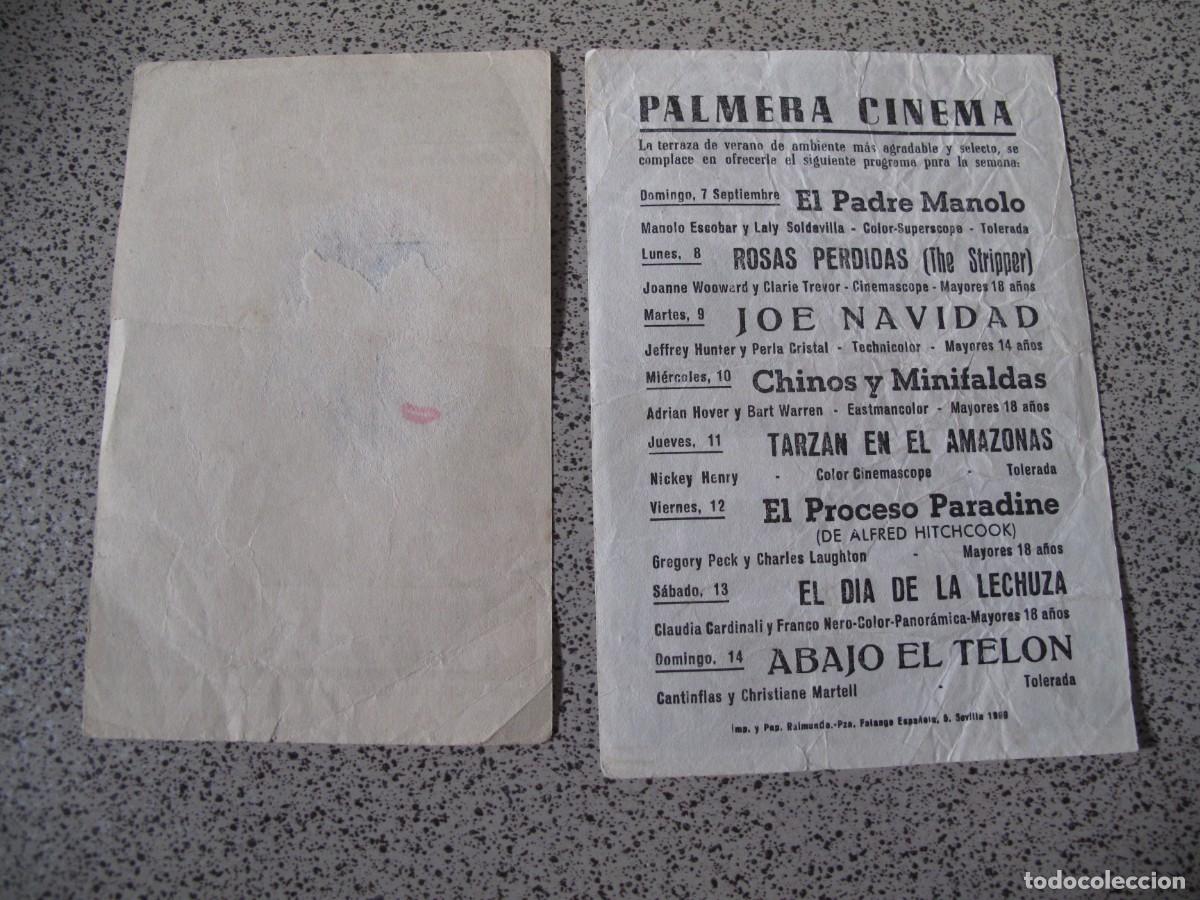 PALMERA CINEMA
La terraza de verano de ambiente más agradable y selecto, se
complace en ofrecerle el siguiente programa para la semana:
Domingo, 7 Septiembre El Padre Manolo
Manolo Escobar y Laly Soldevilla - Color-Superscope - Tolerada
Lunes, 8 ROSAS PERDIDAS (The Stripper)
Joanne Wooward y Clarie Trevor - Cinemascope - Mayores 18 años
Martes, 9 JOE NAVIDAD
Jeffrey Hunter y Perla Cristal - Technicolor - Mayores 14 años
Miércoles, 10 Chinos y Minifaldas
Adrian Hover y Bart Warren - Eastmancolor - Mayores 18 años
Jueves, 11 TARZAN EN EL AMAZONAS
Nickey Henry - Color Cinemascope - Tolerada
Viernes, 12 El Proceso Paradine
(DE ALFRED HITCHCOOK)
Gregory Peck y Charles Laughton - Mayores 18 años
Sábado, 13 EL DIA DE LA LECHUZA
Claudia Cardinali y Franco Nero-Color-Panorámica-Mayores 18 años
Domingo, 14 ABAJO EL TELON
Cantinflas y Christiane Martell - Tolerada
Imp. y Pap. Raimundo.-Pza. Falange Española, Sevilla
todocoleccion